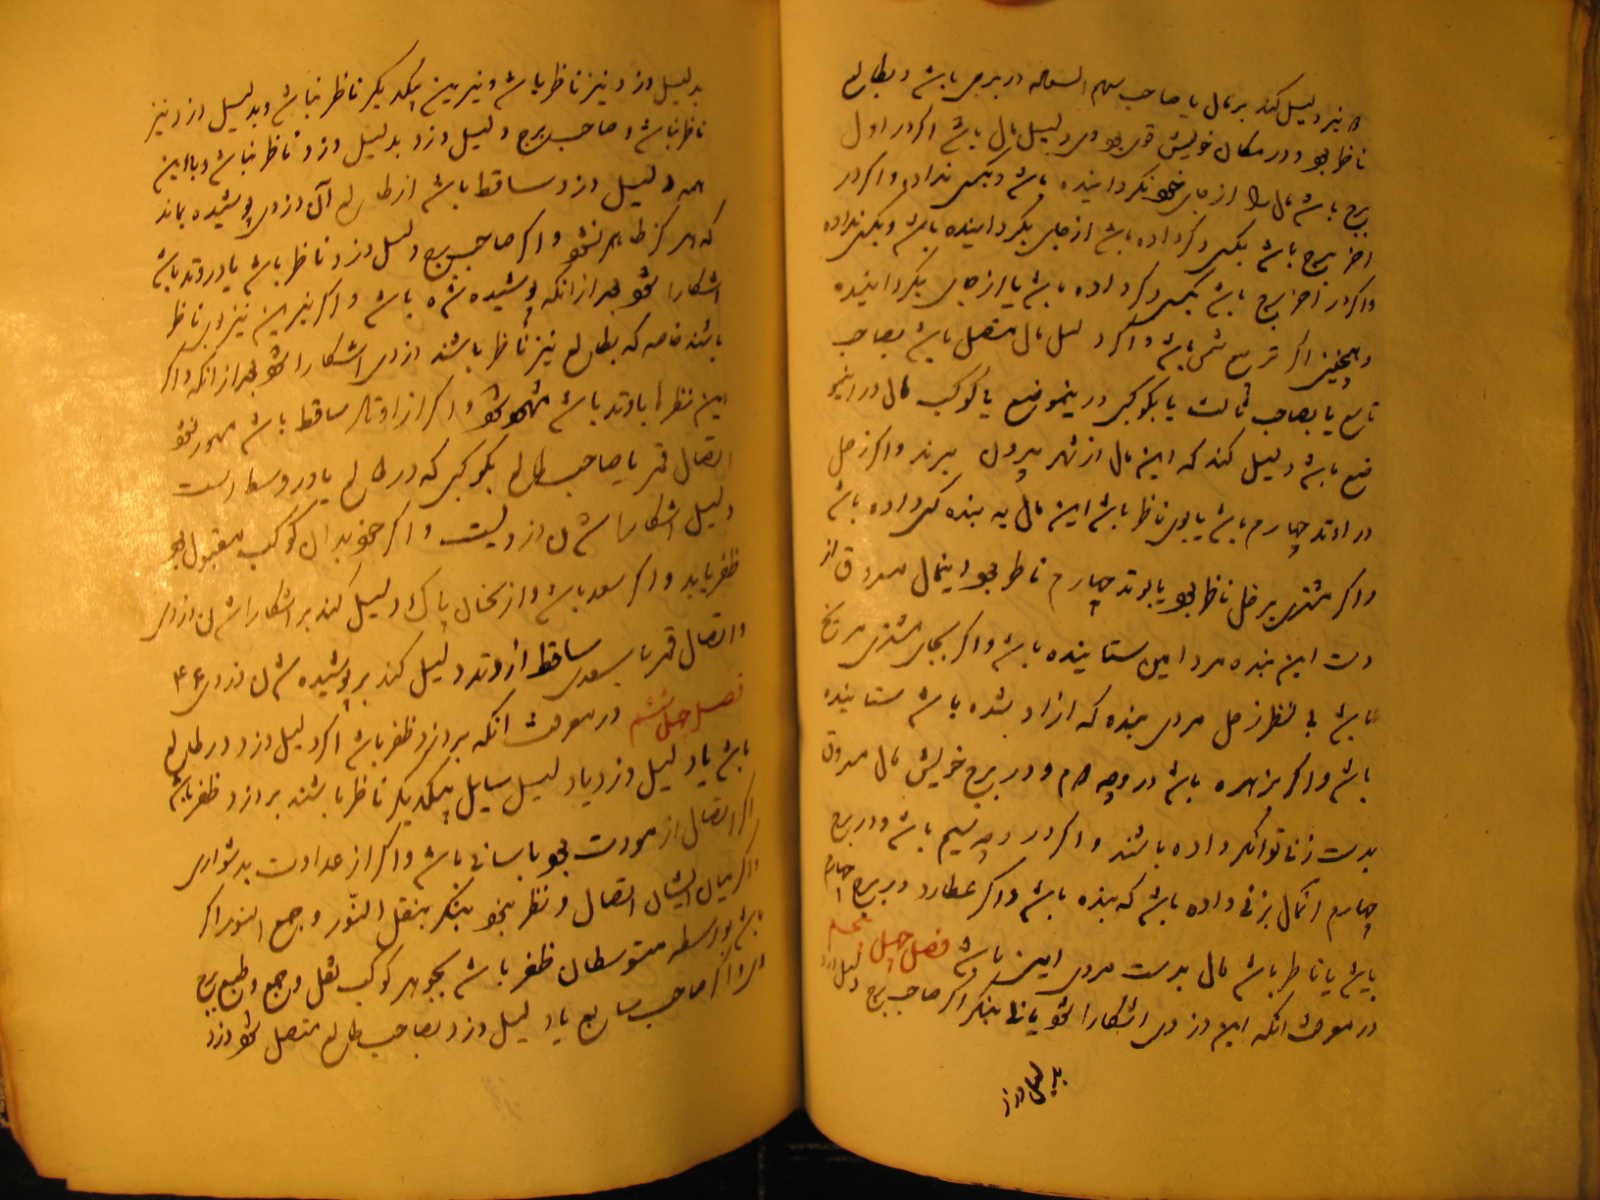 و نیز دلیل کند بر مال یا صاحب سهم السعاده در برجی باشد و بطالع
ناظر بود و در مکان خویش قوی بود وی دلیل مال باشد اکر در اول
برج باشد مال را از جای خود نکردانیده باشد و بکسی نداده و اکر در
اخر برج باشد بکسی دکر داده باشد از جای بکردانیده باشد و بکسی نداده
و اکر در اخر برج باشد بکسی دکر داده باشد یا از جای بکردانیده
و همچنین اکر تربیع شمس باشد و اکر دلیل مال متصل باشد بصاحب
تاسع یا بصاحب ثالث یا بکوکبی در ینموضع یا کوکب مال در اینمو
ضع باشد دلیل کند که این مال از شهر بیرون برند و اکر زحل
در اوتد چهارم باشد یا بوی ناظر باشد این مال به بنده کسی داده باشد
و اکر مشتری بر زحل ناظر بود یا بوتد چهارم ناظر بود اینمال مسروق از
دست این بنده مرد امین ستاننده باشد و اکر بجای مشتری مریخ
باشد بی نظر زحل مردی بنده که ازاد شده باشد ستاننده
باشد و اکر زهره باشد در وجه دوم و در برج خویش مال مسروق
بدست زنی توانکر داده باشند و اکر در وجه سیم باشد و در برج
چهارم انمال بزنی داده باشد که بنده باشد و اکر عطارد در برج چهارم
باشد یا ناظر باشد مال بدست مردی امین باشد فصل چهل پنجم
در معرفت انکه این دزدی اشکارا شود یا نی بنکر اکر صاحب برج دلیل دزد
بدلیل دزد
بدلیل دزد نیز ناظر باشد و نیرین بیکدیکر ناظر نباشد و بدلیل دزد نیز
ناظر نباشد و صاحب برج دلیل دزد بدلیل دزد ناظر نباشد و با این
همه دلیل دزد ساقط باشد از طالع آن دزدی پوشیده بماند
که هرکز ظاهر نشود و اکر صاحب برج دلیل دزد ناظر باشد یا در وتد باشد
اشکارا شود بعد از انکه پوشیده شده باشد و اکر نیرین نیز بوی ناظر
باشند خاصه که بطالع نیز ناظر باشند دزدی اشکارا شود بعد از انکه و اکر
این نظرها با وتد باشد مشهور شود و اکر از اوتاد ساقط باشد مشهور نشود
اتصال قمر یا صاحب طالع بکوکبی که در طالع یا در وسط السما است
دلیل اشکارا شدن دزدیست و اکر خود بدان کوکب مقبول بود
ظفر یابد و اکر سعد باشد و از نحسان پاک دلیل کند بر اشکارا شدن دزدی
و اتصال قمر با سعدی ساقط از وتد دلیل کند بر پوشیده شدن دزدی ۴۶
فصل چهل ششم در معرفت انکه بر دزد ظفر باشد اکر دلیل دزد در طالع
باشد یا دلیل دزد یا دلیل سایل بیکدیکر ناظر باشند بر دزد ظفر باشد
اکر اتصال از مودت بود باسانی باشد و اکر از عداوت بدشواری
و اکر میان ایشان اتصال و نظر نبود بنکر بنقل النور و جمع النور اکر
باشد بواسطه متوسطان ظفر باشد بجوهر کوکب نقل و جمع و طبع برج
وی و اکر صاحب سابع یا دلیل دزد بصاحب طالع متصل شود دزد